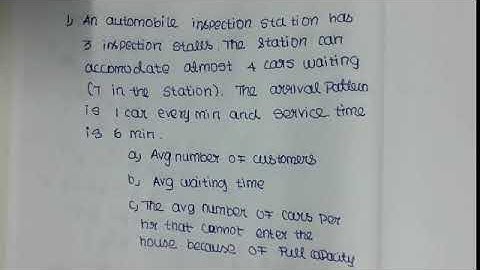 1) An automobile inspection station has
3 inspection stalls. The station can
accomodate almost 4 cars waiting
(7 in the station). The arrival Pattern
is 1 car every min and service time
is 6 min.
a) Avg number of customers
b) Avg waiting time
c) The avg number of cars per
hr that cannot enter the
house because of Full capacity